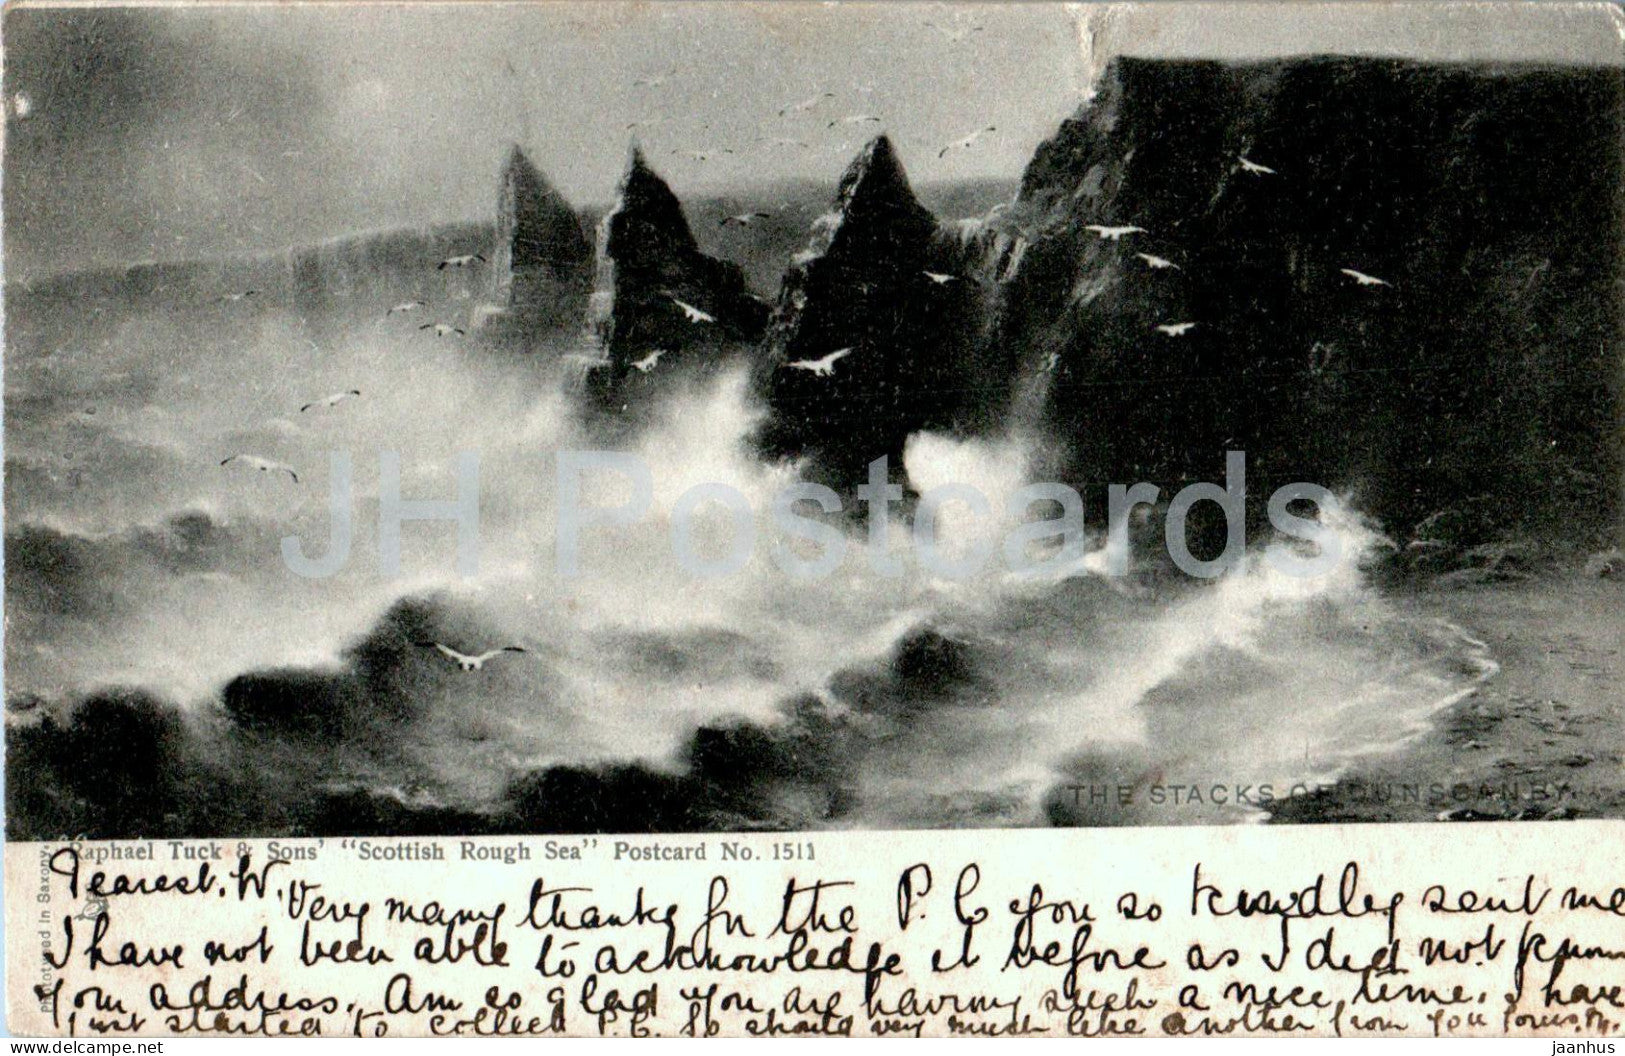 JH Postcards
THE STACKS OF DUNSCANBY.
Raphael Tuck & Sons' "Scottish Rough Sea" Postcard No. 1511
Photographed in Saxony.
Dearest. W.
Very many thanks for the P.C you so kindley sent me
I have not been able to acknowledge it before as I did not know
your address. Am so glad you are having such a nice time. I have
just started to collect P.C. so should very much like another from you
jaanhus